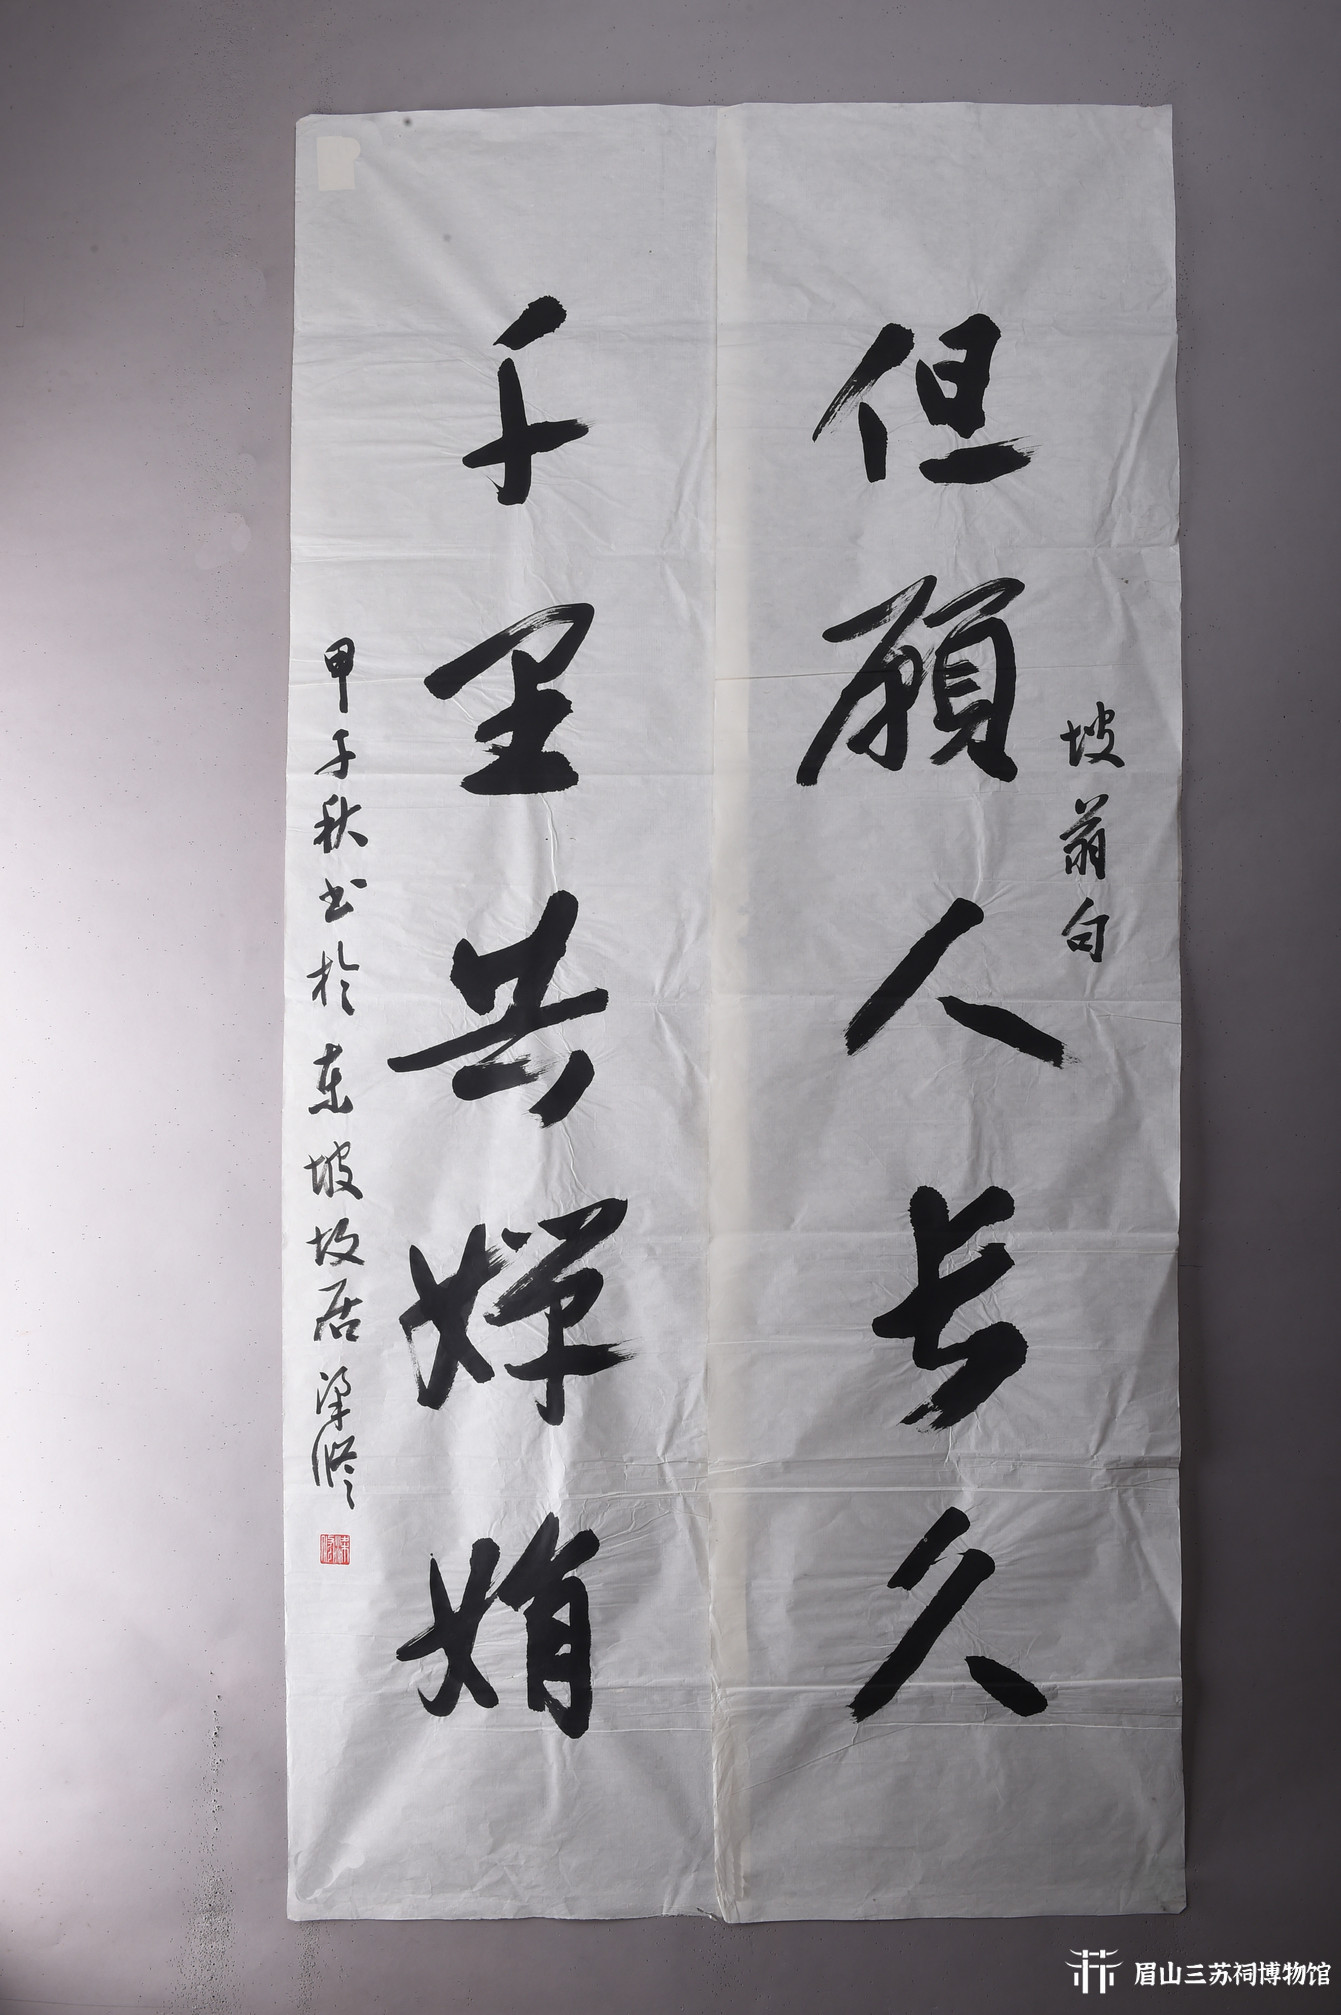 坡翁句
但願人长久
千里共嬋娟
甲子秋书於东坡故居 梁修
眉山三苏祠博物馆